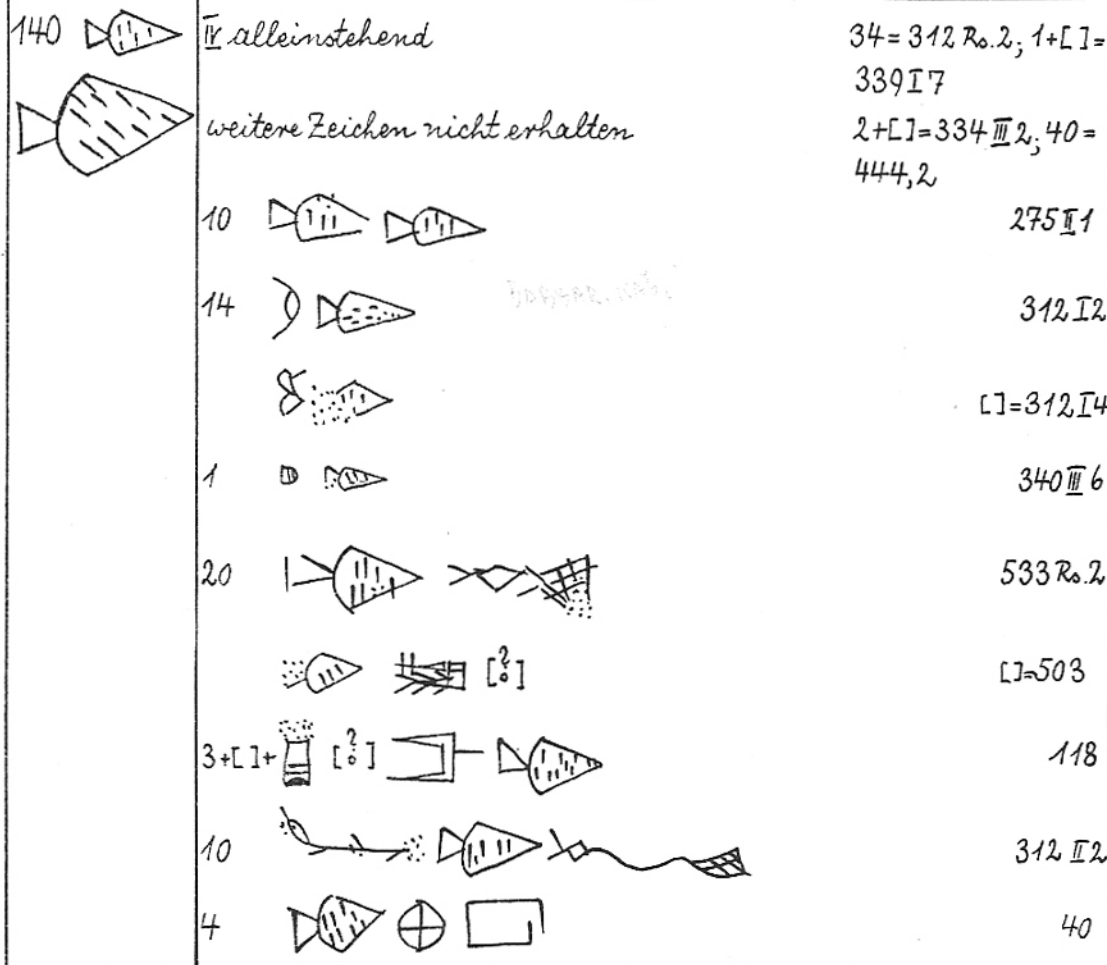 140 IV alleinstehend 34=312 Rs.2; 1+[ ]=
339 I 7
weitere Zeichen nicht erhalten 2+[ ]=334 III 2; 40=
444,2
10 275 II 1
14 312 I 2
[ ]=312 I 4
1 340 III 6
20 533 Rs.2
[?] [ ]=503
3+[ ]+ [?] 118
10 312 II 2
4 40